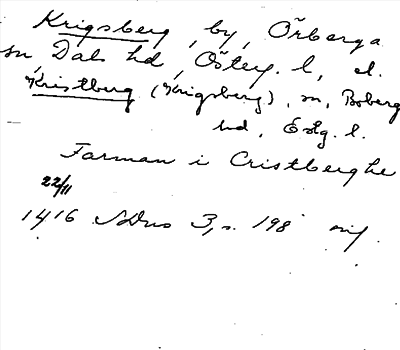 Krigsberg, by, Örberga
sn, Dals hd, Österg. l, el.
Kristberg (Krigsberg), sn, Boberg
hd, Östg. l.
Farman i Cristberghe
22/11
1416 SDns 3, s. 198